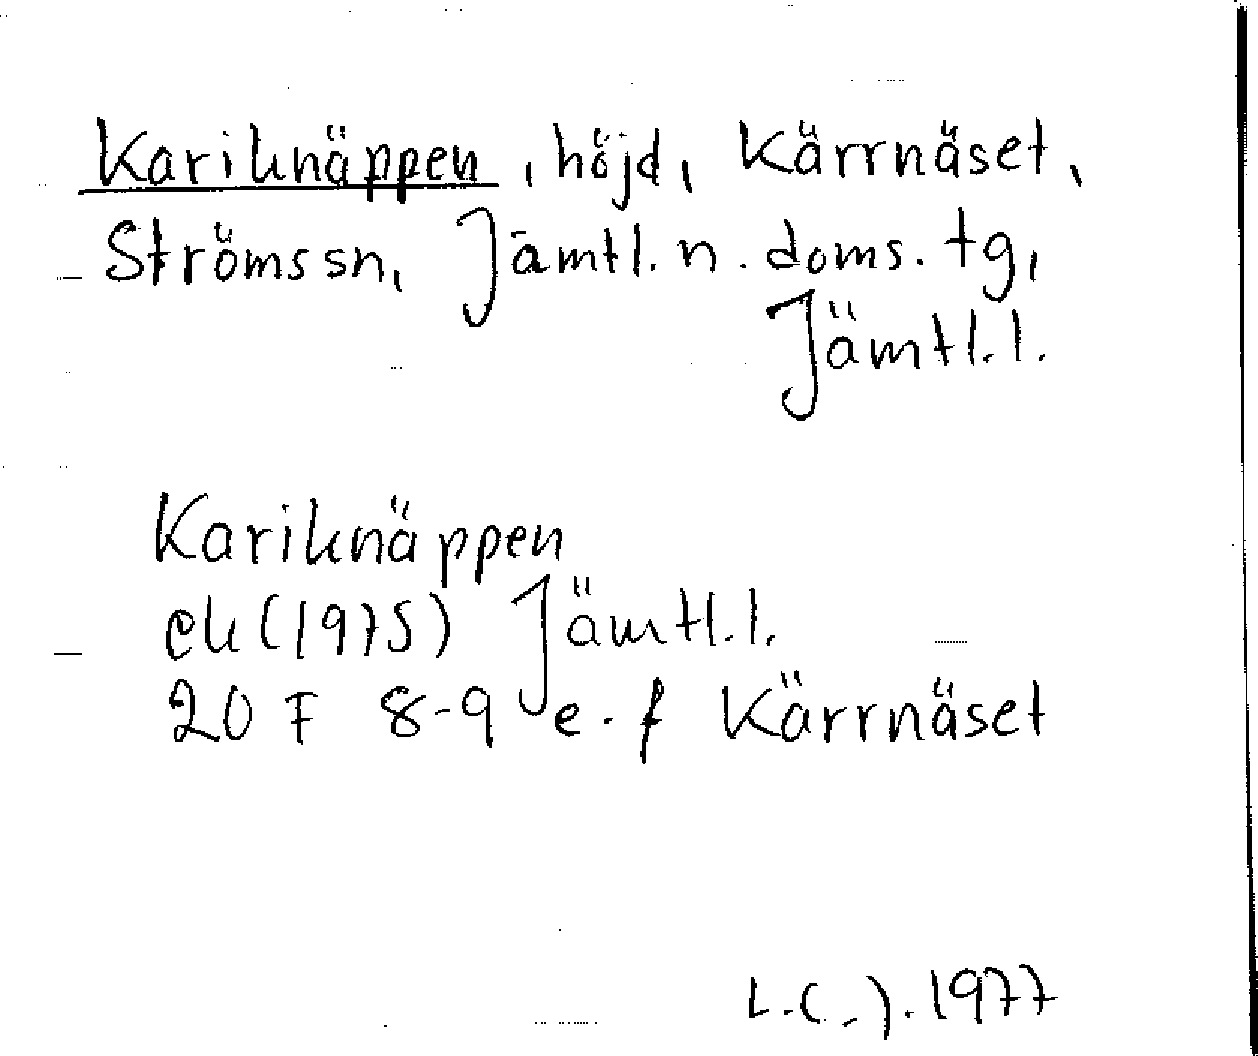 Kariknäppen, höjd, Kärrnäset,
Ströms sn, Jämtl. n. doms. tg,
Jämtl. l.
Kariknäppen
ek (1975) Jämtl. l.
20 F 8-9 e-f Kärrnäset
L.C-J. 1977